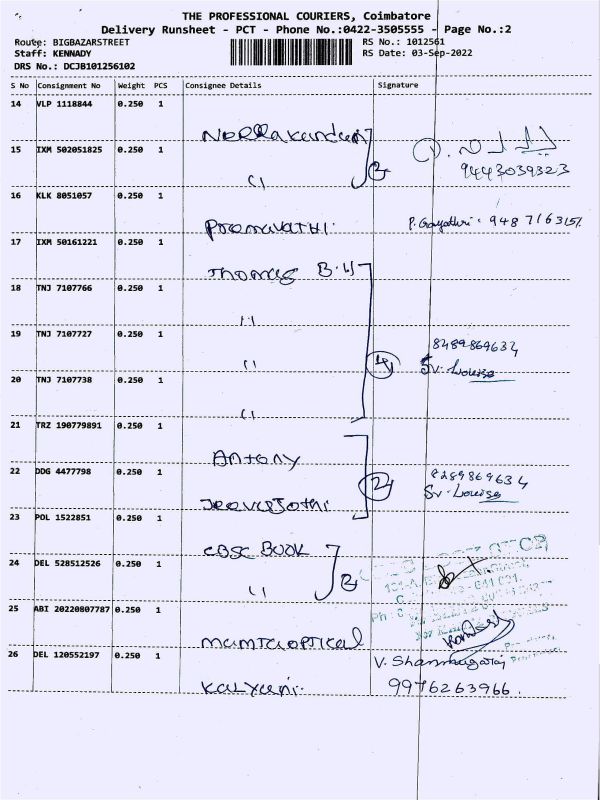 THE PROFESSIONAL COURIERS, Coimbatore
Delivery Runsheet - PCT - Phone No.:0422-3505555 - Page No.:2
Route: BIGBAZARSTREET RS No.: 1012561
Staff: KENNADY RS Date: 03-Sep-2022
DRS No.: DCJB101256102
S No Consignment No Weight PCS Consignee Details Signature
14 VLP 1118844 0.250 1
15 IXM 502051825 0.250 1 2 9443039323
16 KLK 8051057 0.250 1
P. Gayathri
17 IXM 50161221 0.250 1
Thomas B.H
18 TNJ 7107766 0.250 1
19 TNJ 7107727 0.250 1 8489869634
4 Sv. Louise
20 TNJ 7107738 0.250 1
21 TRZ 190779891 0.250 1
Antony
22 DDG 4477798 0.250 1 8289869634
2 Sv. Louise
Jeevajothi
23 POL 1522851 0.250 1
CBSC BOOK
24 DEL 528512526 0.250 1
2
25 ABI 20220807787 0.250 1
Mamta optical
26 DEL 120552197 0.250 1 V. Shanmugaraj
Kalyani. 9976263966.